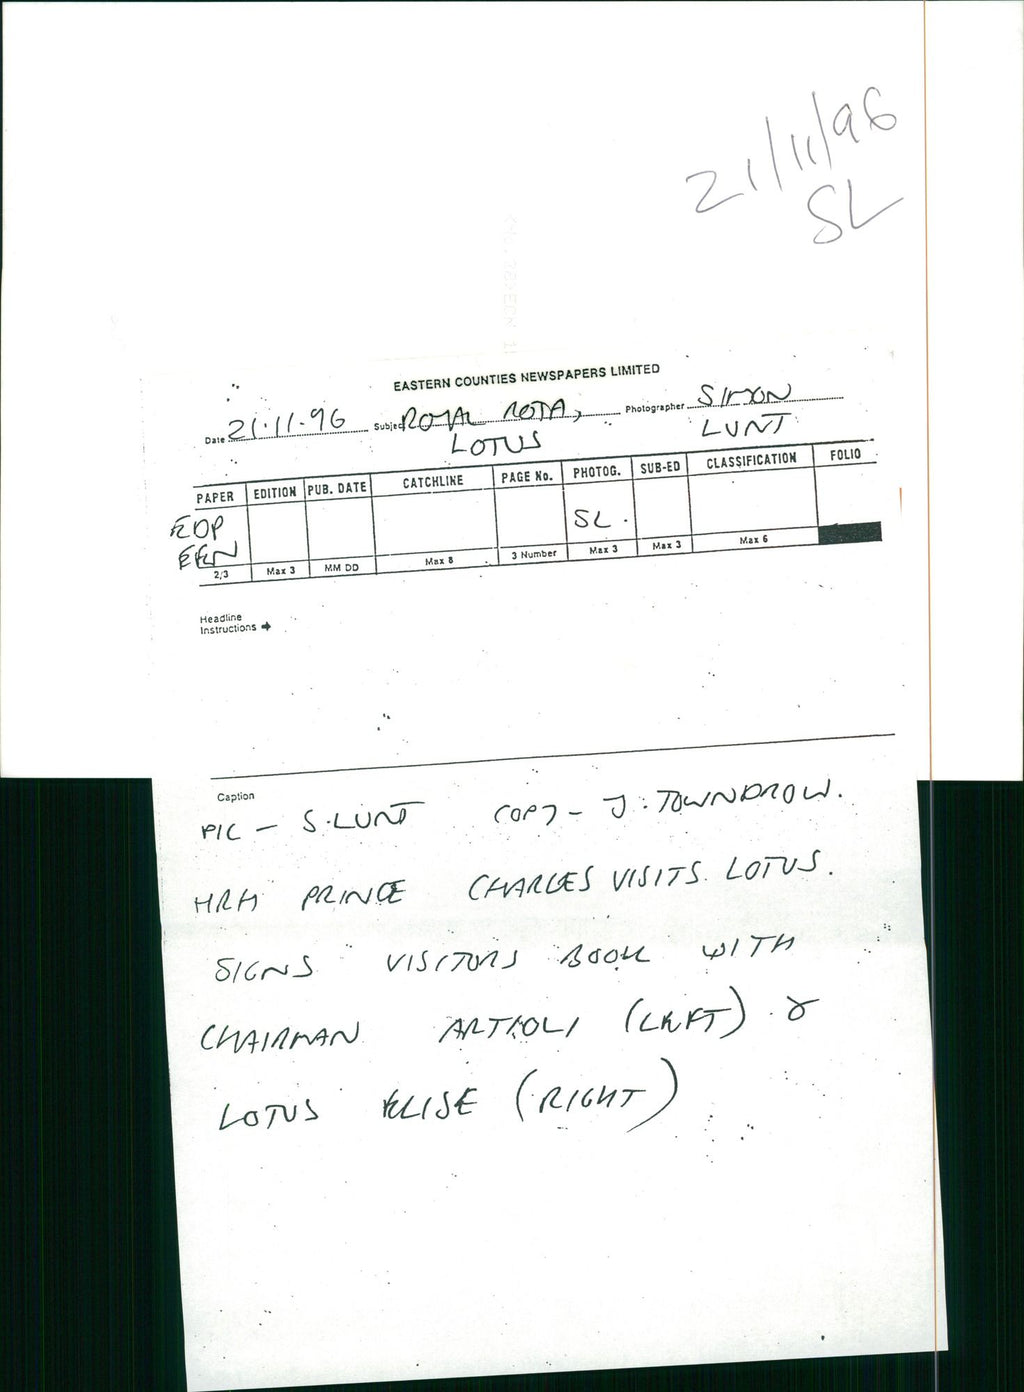 21/11/96
SL
EASTERN COUNTIES NEWSPAPERS LIMITED
Date 21.11.96 Subject ROYAL ROTA, Photographer SIMON
LOTUS LUNT
PAPER EDITION PUB. DATE CATCHLINE PAGE No. PHOTOG. SUB-ED CLASSIFICATION FOLIO
EDP SL.
EEN
2/3 Max 3 MM DD Max 8 3 Number Max 3 Max 3 Max 6
Headline
Instructions →
Caption
PIC - S.LUNT COPY - J. TOWNDROW.
HRH PRINCE CHARLES VISITS LOTUS.
SIGNS VISITORS BOOK WITH
CHAIRMAN ARTIOLI (LEFT) &
LOTUS ELISE (RIGHT)